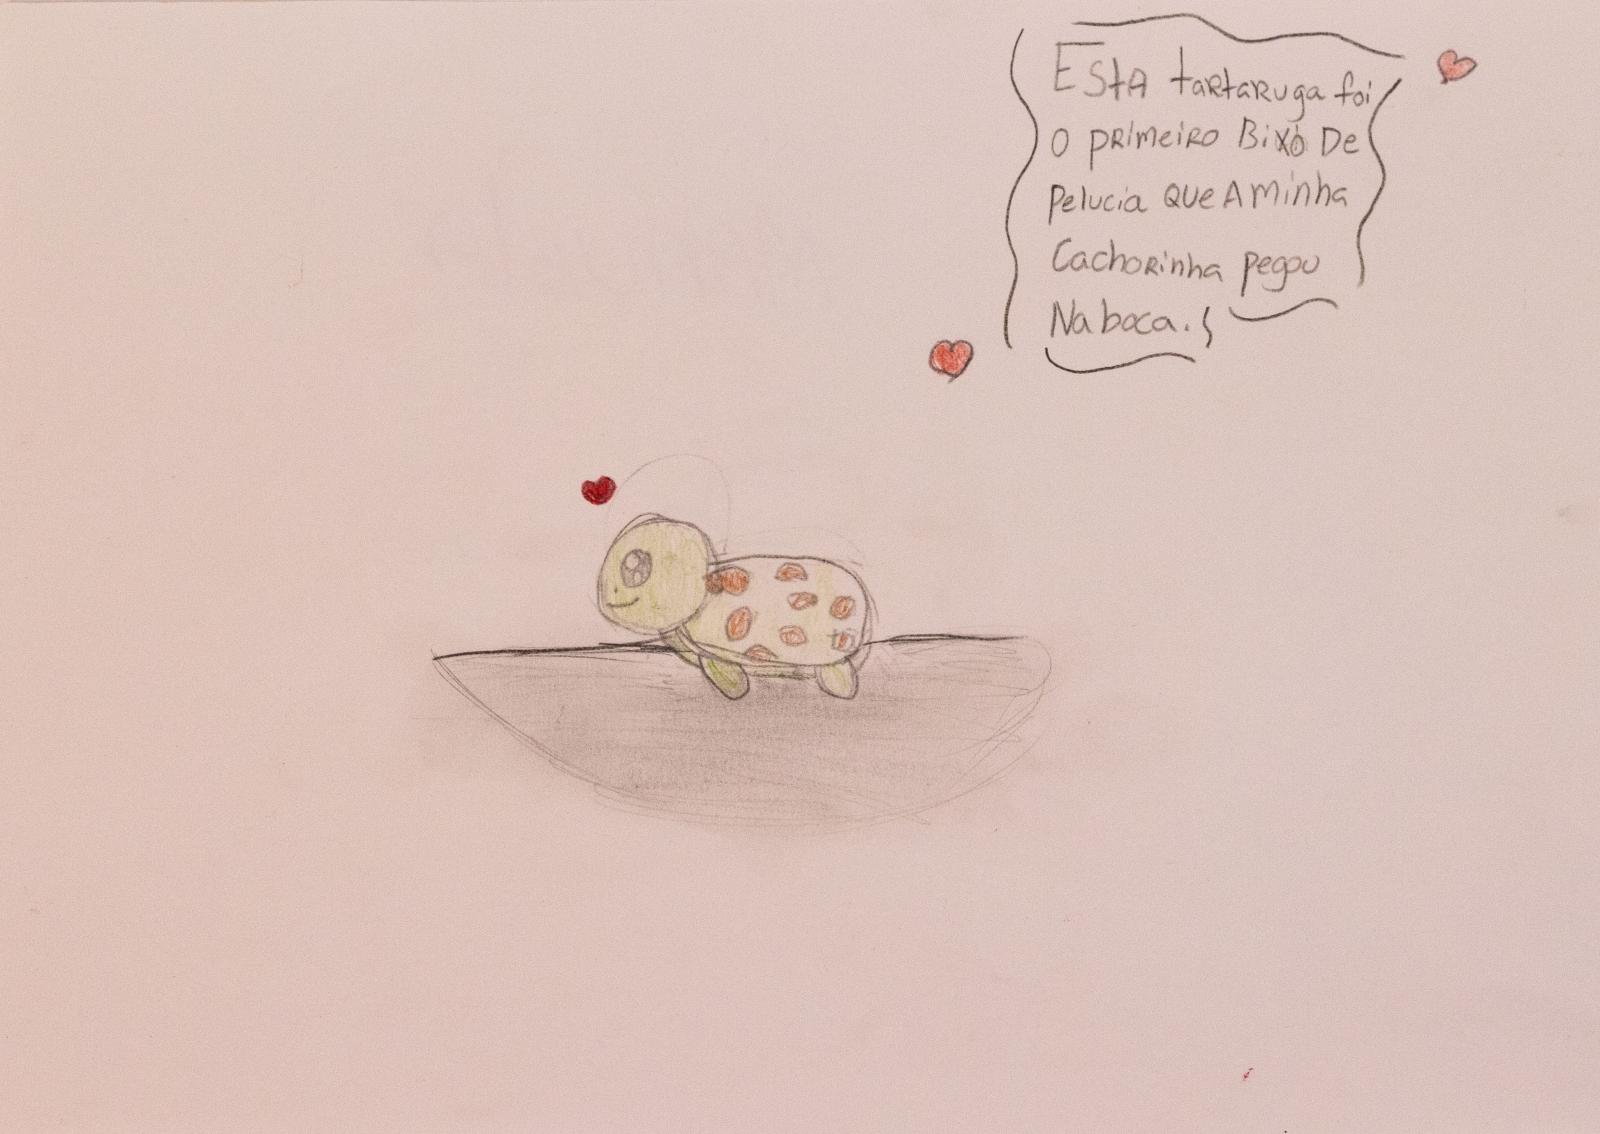 Esta tartaruga foi
o primeiro Bixo De
pelucia que a minha
Cachorinha pegou
Na boca.